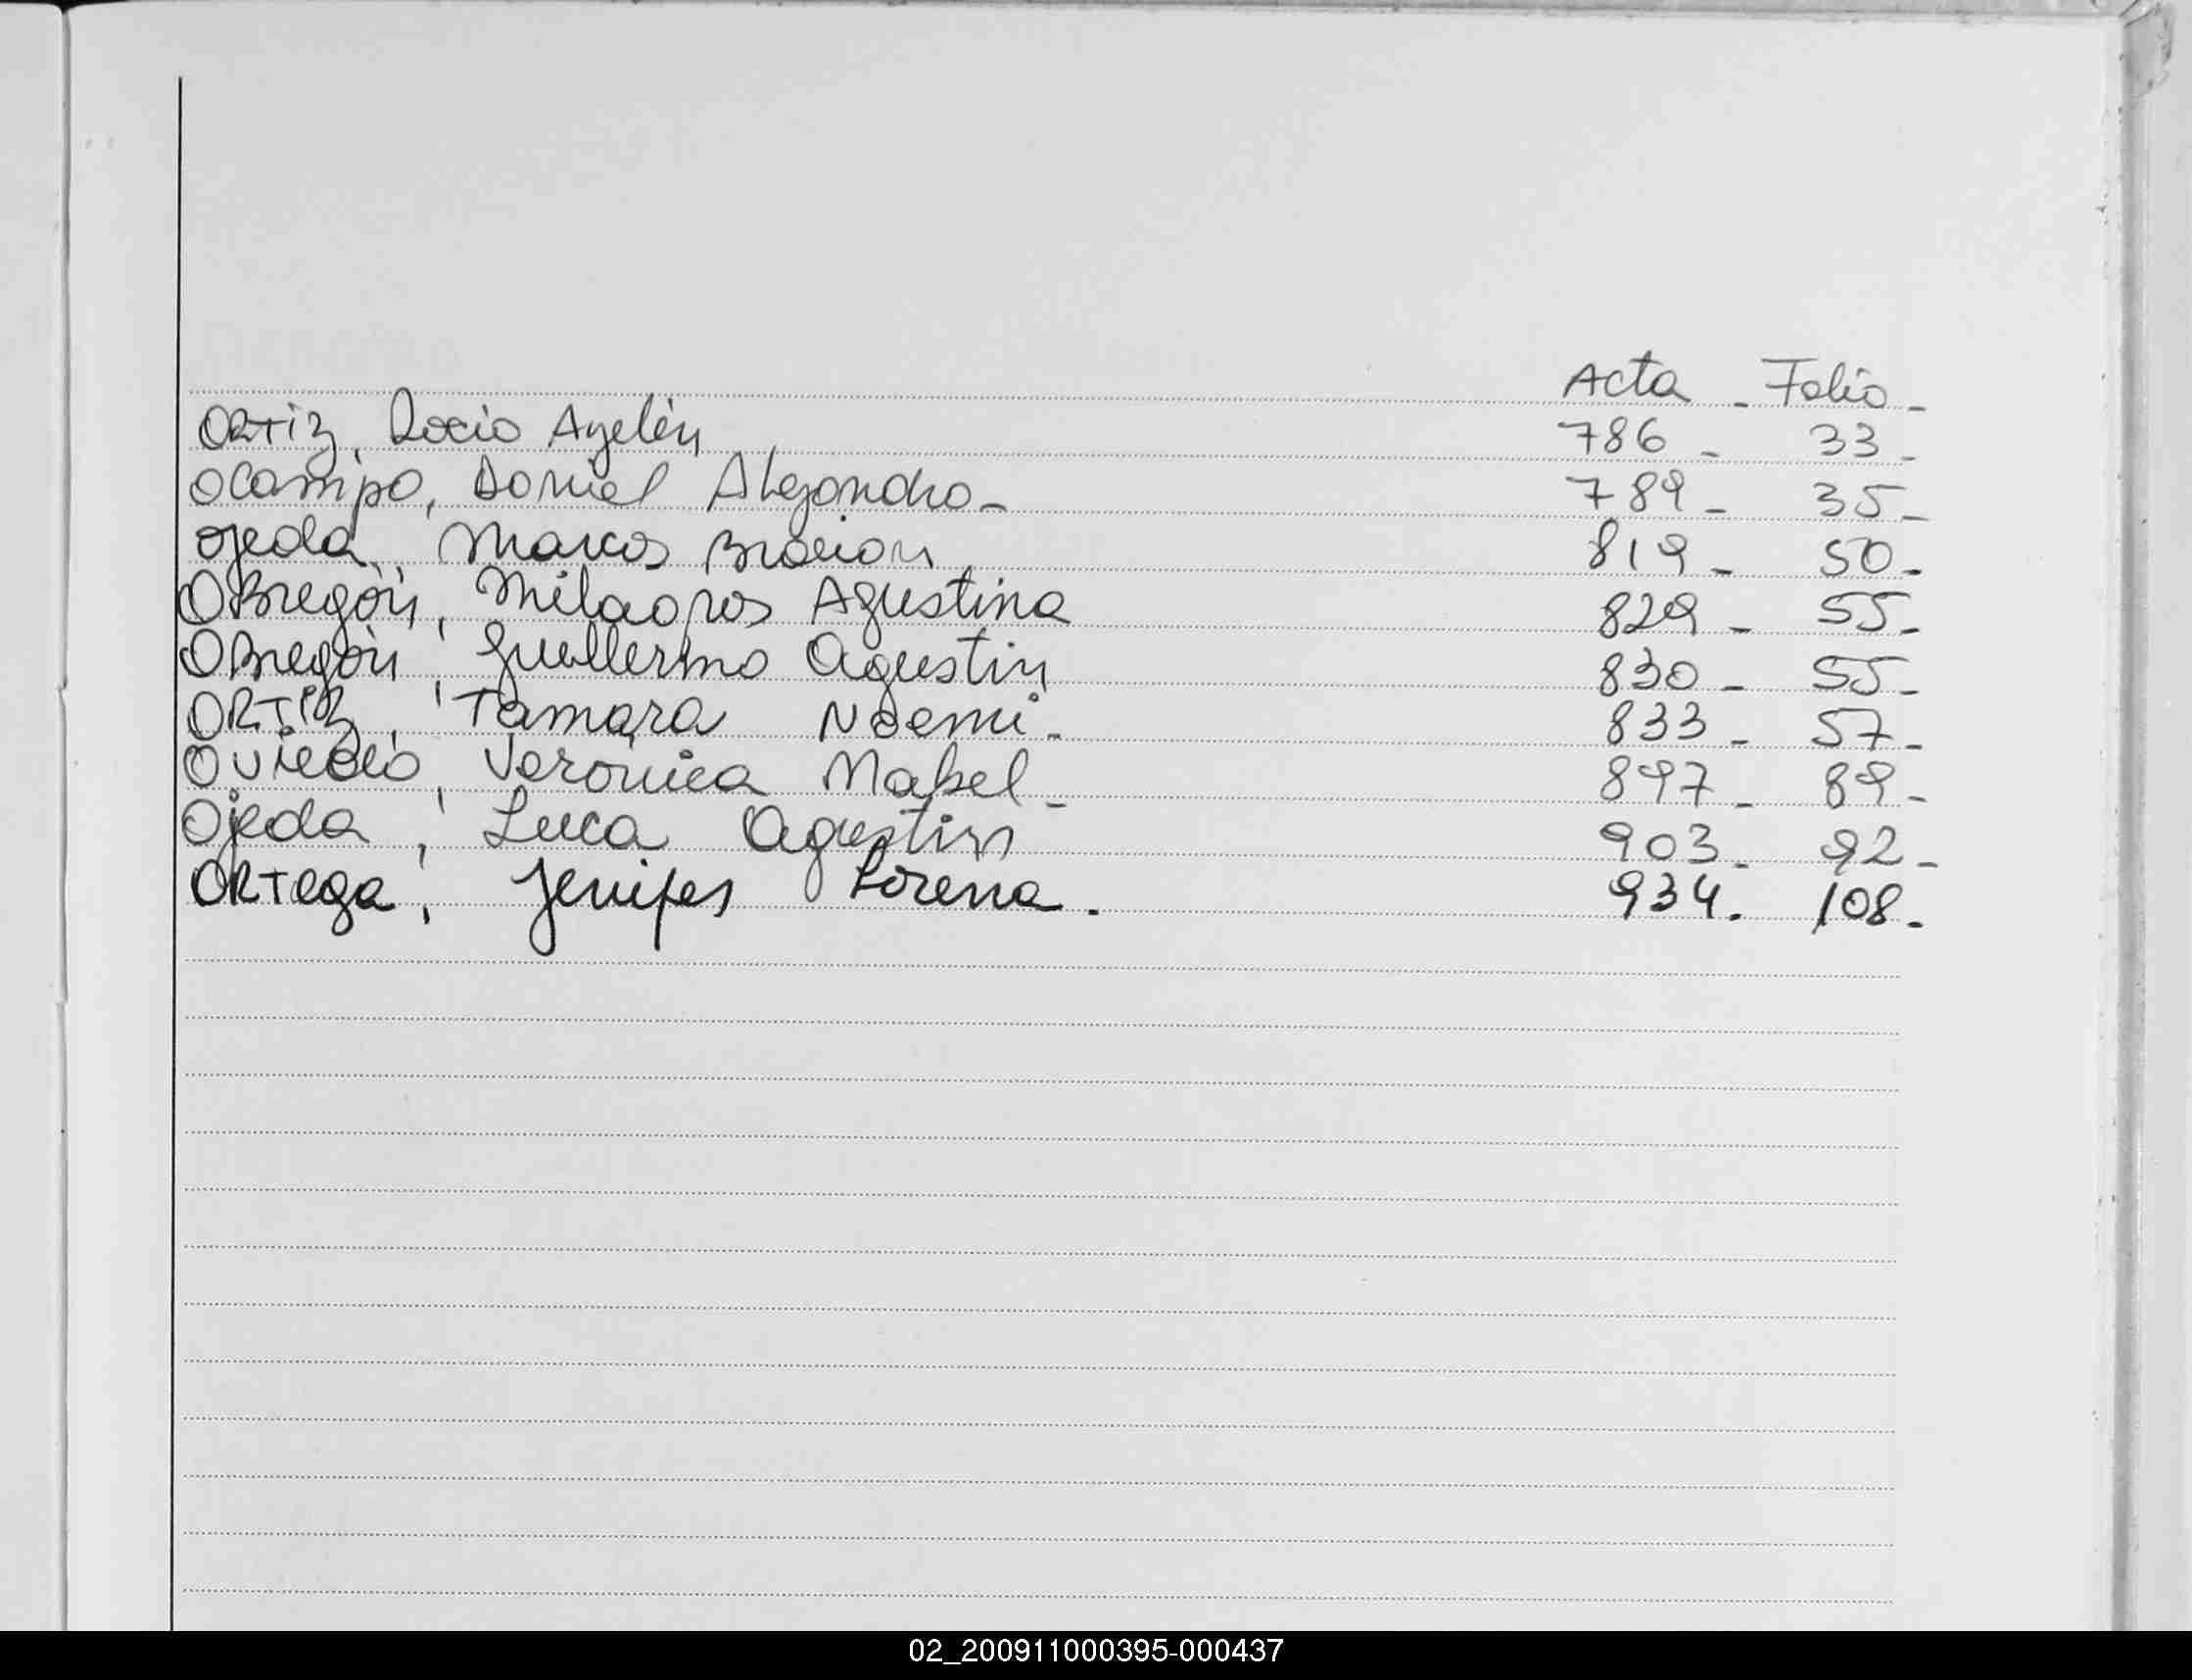 Acta - Folio -
Ortiz, Rocio Ayelén 786 - 33 -
Ocampo, Daniel Alejandro - 789 - 35 -
Ojeda, Marcos Braian 819 - 50 -
OBregón, Milagros Agustina 829 - 55 -
OBregón, Guillermo Agustin 830 - 55 -
ORTiz, Tamara Noemi - 833 - 57 -
Oviedo, Veronica Mabel - 897 - 89 -
Ojeda, Luca Agustin 903 - 92 -
ORTega, Jenifer Lorena. 934. 108.
02_200911000395-000437